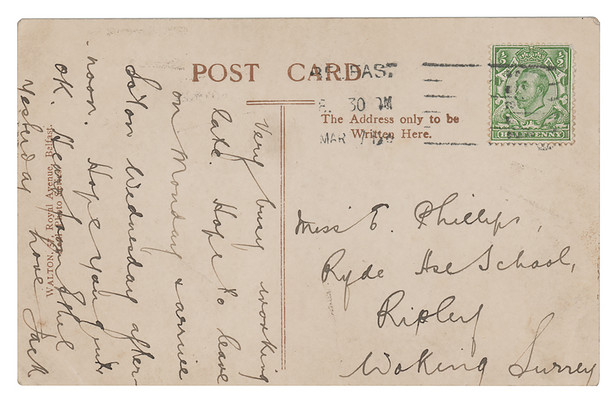 POST CARD
BELFAST
30 PM
MAR
The Address only to be
Written Here.
HALFPENNY
Very busy, working
late. Hope to leave
on Monday & arrive
Wednesday after-
noon. Hope you
OK. Hear from Ethel
Yesterday
love Jack
Miss E. Phillips,
Ryde Hse School,
Ripley
Woking Surrey
WALTON, Royal Avenue, Belfast.